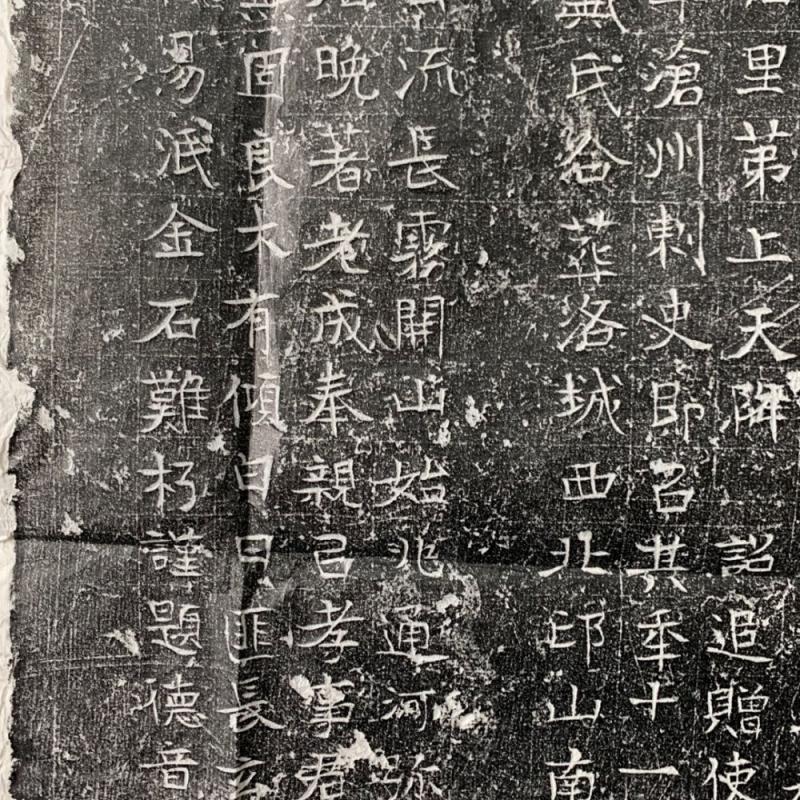 里苐上天降詔追贈使
滄州刺史即召其年十一
氏合葬洛城西北邙山南
流長霧開山始兆運河弥
晚著老成奉親己孝事君
固良木有傾白日匪長玄
易泯金石難朽謹題德音